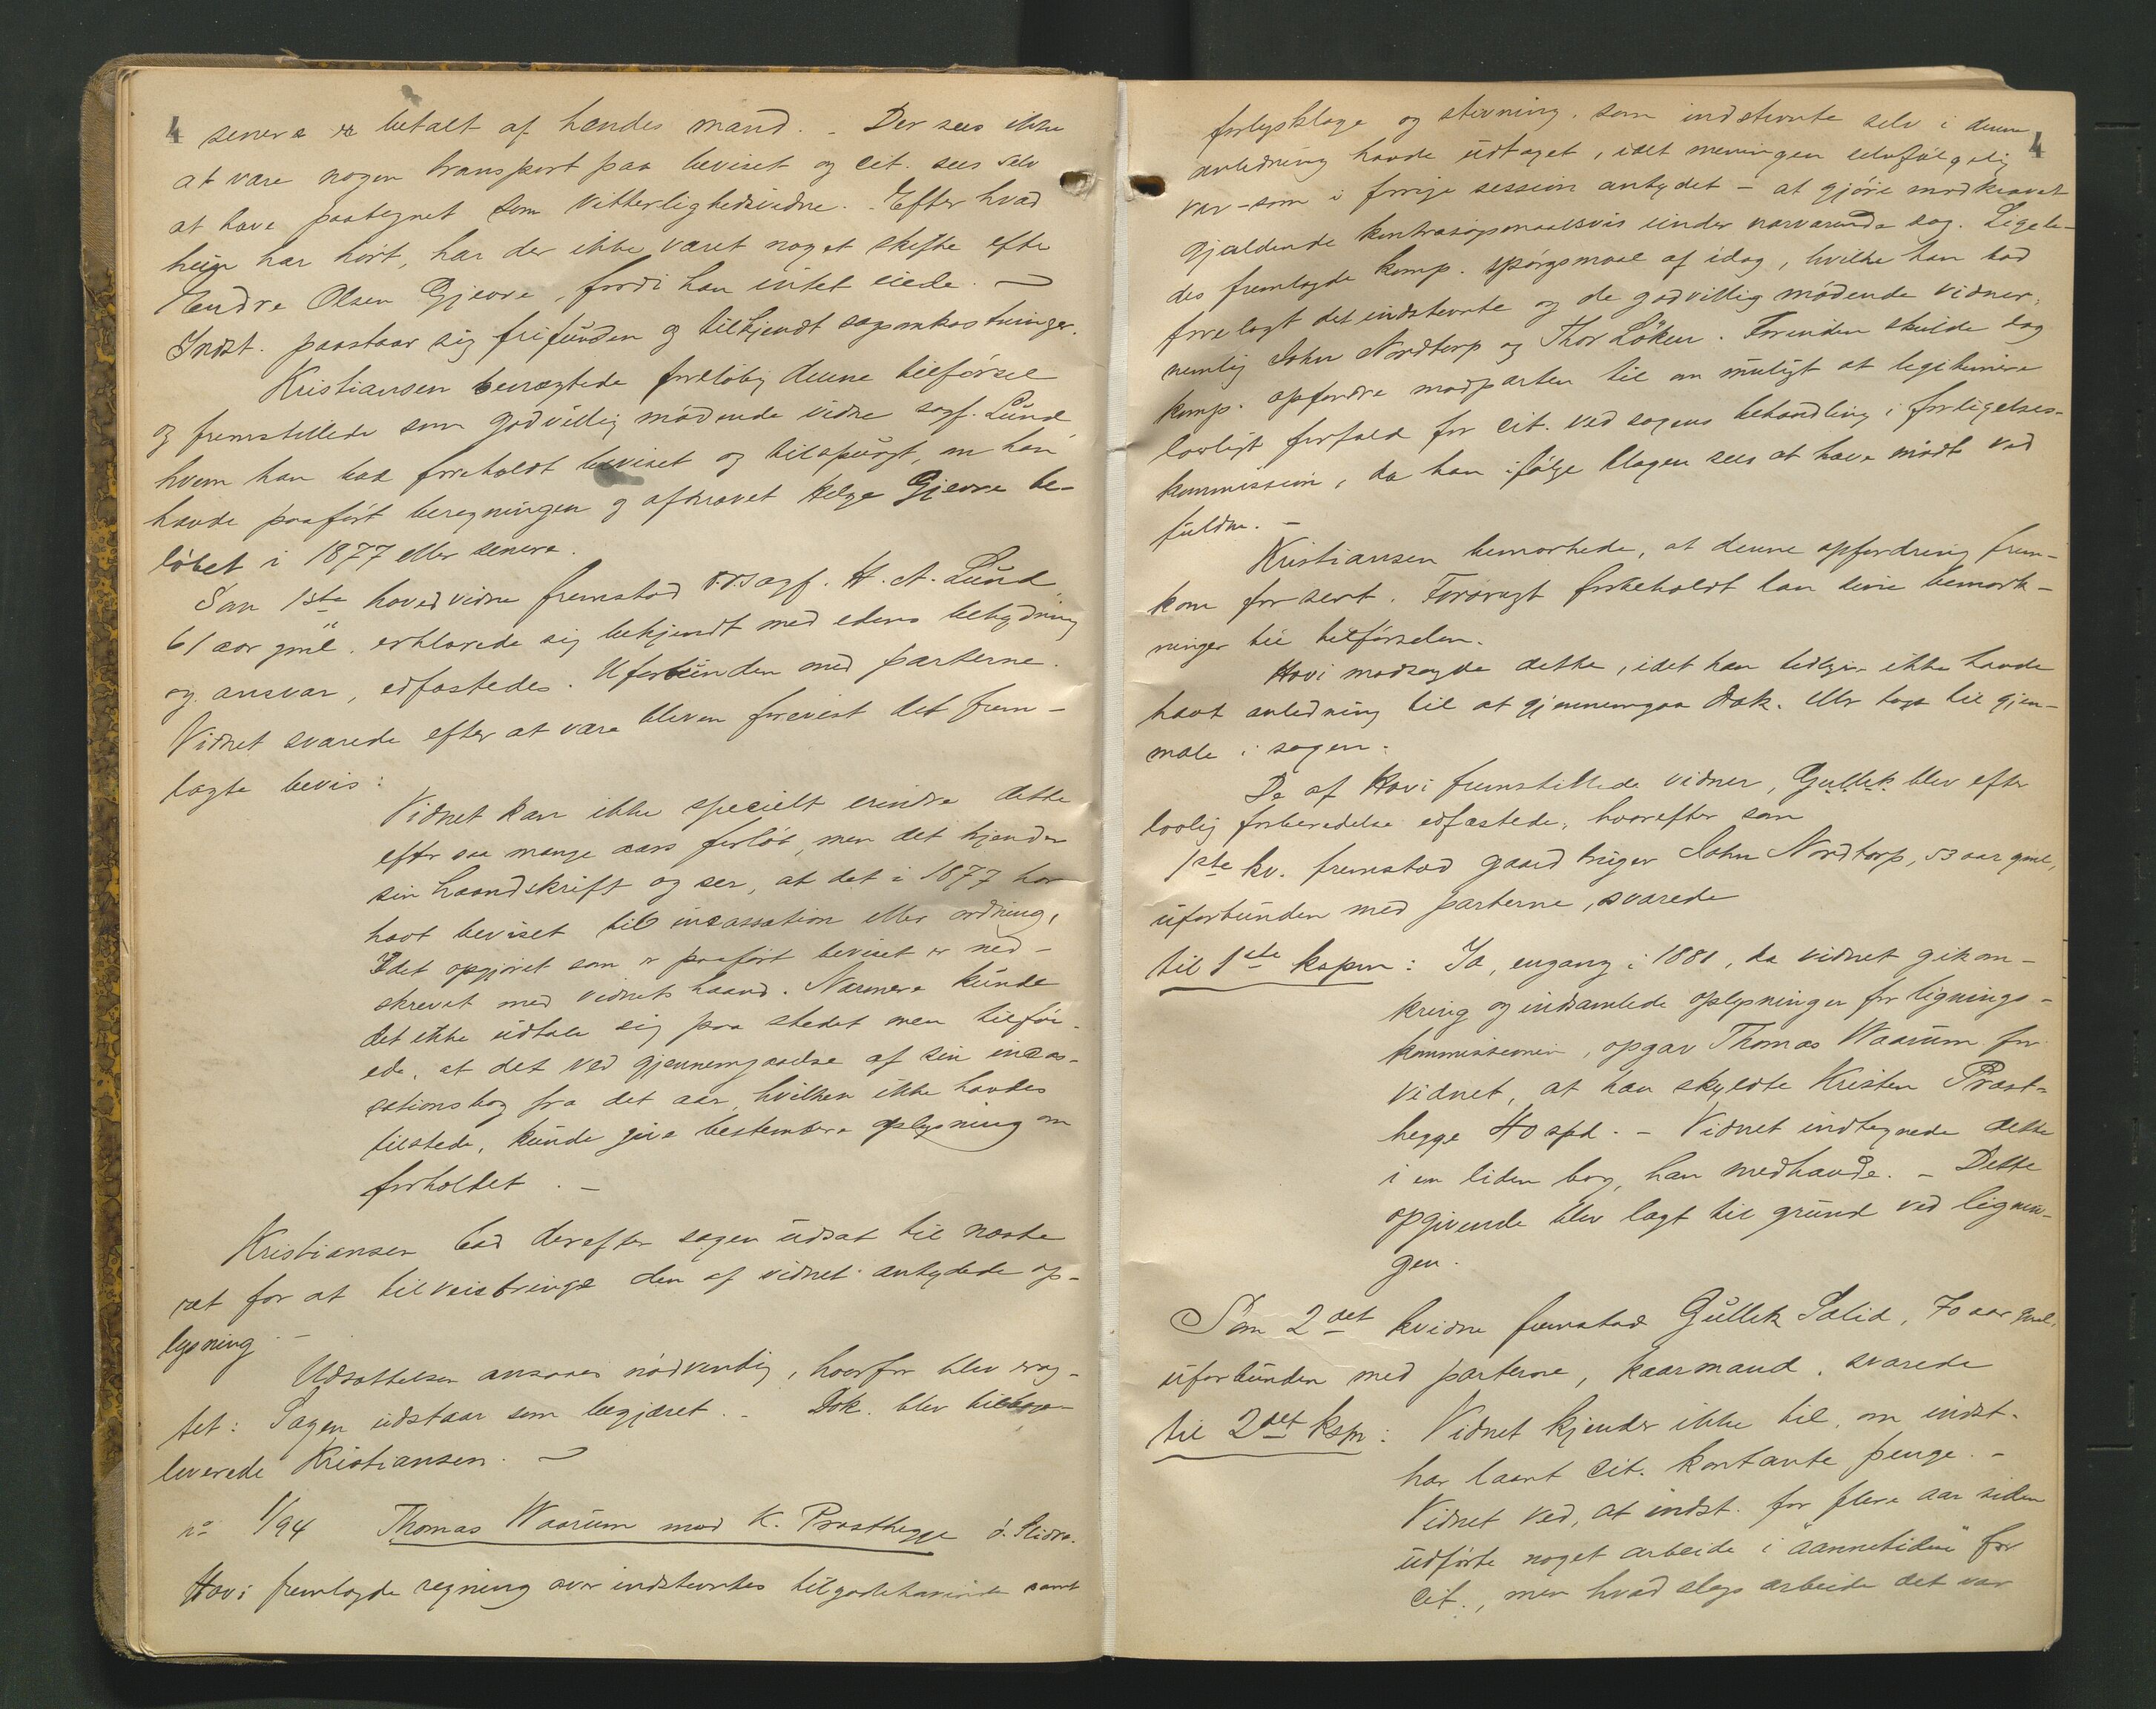 4
senere er betalt af hendes mand. - Der sees ikke
at være nogen transport paa beviset og cit. sees selv
at have paategnet som vitterlighedsvidne. Efter hvad
hun har hørt, har der ikke været noget skifte efter
Endre Olsen Gjevre, fordi han intet eiede. -
Indst. paastaar sig frifunden og tilkjendt sagsomkostninger.
Kristiansen benægtede foreløbig denne tilførsel
og fremstillede som godvillig mødende vidne sagf. Lund
hvem han bad foreholdt beviset og tilspurgt, om han
havde paaført beregningen og afkrævet Helge Gjevre be-
løbet i 1877 eller senere.
Som 1ste hovedvidne fremstod o.r.sagf. H. A. Lund
61 aar gml. erklærede sig bekjendt med edens betydning
og ansvar, edfæstedes. Uforbunden med parterne.
Vidnet svarede efter at være bleven forevist det frem-
lagte bevis:
Vidnet kan ikke specielt erindre dette
efter saa mange aars forløb, men det kjender
sin haandskrift og ser, at det i 1877 har
havt beviset til incassation eller ordning,
Idet opgjøret som er paaført beviset er ned-
skrevet med vidnets haand. Nærmere kunde
det ikke udtale sig paa stedet men tilføi-
ede, at det ved gjennemgaaelse af sin incas-
sationsbog fra det aar, hvilken ikke havdes
tilstede, kunde give bestemtere oplysning om
forholdet. -
Kristiansen bad derefter sagen udsat til næste
ret for at tilveiebringe den af vidnet antydede op-
lysning. -
Udsættelsen ansaaes nødvendig, hvorfor blev erag-
tet: Sagen udstaar som begjæret. - Dok. blev tilbage-
leverede Kristiansen. -
no 1/94 Thomas Waarum mod K. Præsthegge ö. Slidre.
Hovi fremlagde regning over indstevntes tilgodehavende samt
4
forligsklage og stevning, som indstevnte selv i denne
anledning havde udtaget, idet meningen selvfølgelig
var - som i forrige session antydet - at gjøre modkravet
gjældende kontrasøgsmaalsvis under nærværende sag. Ligele-
des fremlagde komp. spørgsmaal af idag, hvilke han bad
forelagt det indstevnte og de godvillig mødende vidner,
nemlig John Nordtorp og Thor Løken. Forinden skulde dog
komp. opfordre modparten til om muligt at legitimere
lovligt forfald for cit. ved sagens behandling i forligelses-
kommission, da han ifølge klagen sees at have mødt ved
fuldm. -
Kristiansen bemærkede, at denne opfordring frem-
kom for sent. Forøvrigt forbeholdt han sine bemærk-
ninger til tilførselen.
Hovi modsagde dette, idet han tidligere ikke havde
havt anledning til at gjennemgaa dok. eller tage til gjen-
mæle i sagen.
De af Hovi fremstillede vidner, Gullik blev efter
lovlig forberedelse edfæstede, hvorefter som
1ste kv. fremstod gaardbruger John Nordtorp, 53 aar gml,
uforbunden med parterne, svarede
til 1ste kspm: Ja, engang i 1881, da vidnet gik om-
kring og indsamlede oplysninger for lignings-
kommissionen, opgav Thomas Waarum for
vidnet, at han skyldte Kristen Præst-
hegge 40 spd. - Vidnet indtegnede dette
i en liden bog, han medhavde. - Dette
opgivende blev lagt til grund ved lignin-
gen.
Som 2det kvidne fremstod Gullik Salid, 70 aar gml,
uforbunden med parterne, kaarmand, svarede
til 2det kspm: Vidnet kjender ikke til, om indst.
har laant cit. kontante penge. -
Vidnet ved, at indst. for flere aar siden
udførte noget arbeide i "aannetiden" for
cit., men hvad slags arbeide det var